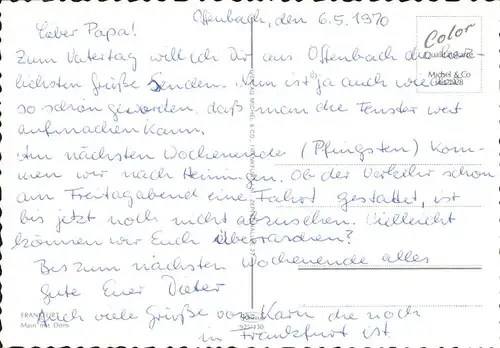 Offenbach, den 6.5.1970
Lieber Papa!
Zum Vatertag will ich Dir aus Offenbach die herz-
lichsten Grüße senden. Nun ist ja auch wieder
so schön geworden, daß man die Fenster weit
aufmachen kann.
Am nächsten Wochenende (Pfingsten) kom-
men wir nach Heiningen. Ob der Verkehr schon
am Freitagabend eine Fahrt gestattet, ist
bis jetzt noch nicht abzusehen. Vielleicht
können wir Euch überraschen?
Bis zum nächsten Wochenende alles
Gute Euer Dieter
Auch viele Grüße von Karin die noch
in Frankfurt ist.
Color
Michel & Co
FRANKFURT
Main mit Dom